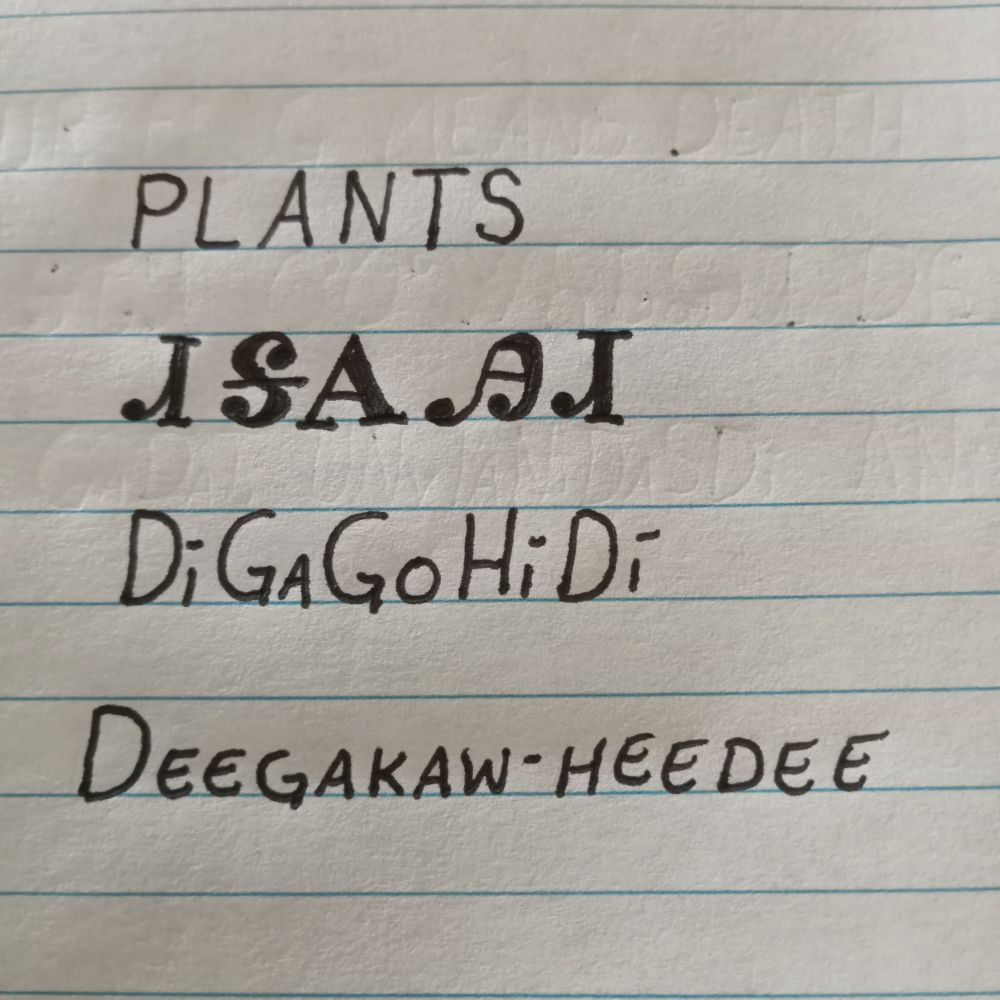 PLANTS
ᏗᎦᎪᎯᏗ
DiGAGOHiDi
DEEGAKAW-HEEDEE